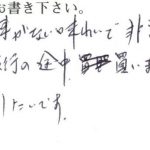 お書き下さい。
事がない味わいで非
行の途中 買いま
りたいです。